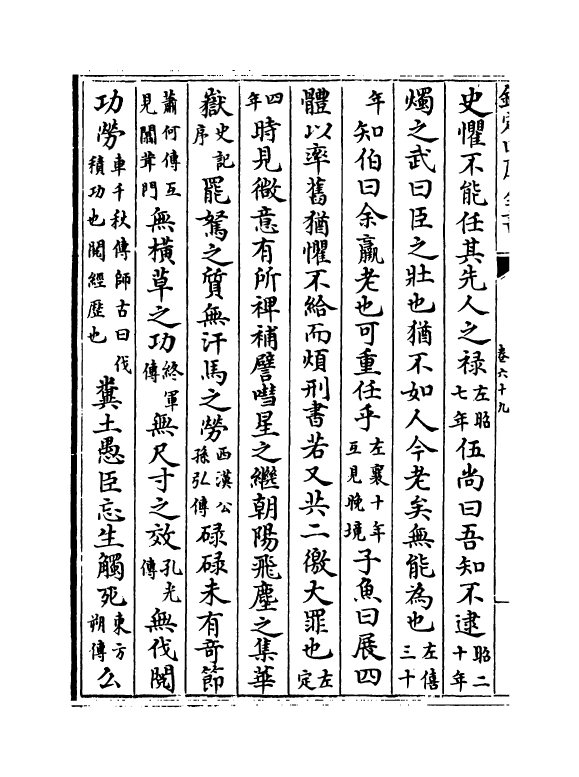 欽定四庫全書
卷六十九
史懼不能任其先人之禄左昭七年伍尚曰吾知不逮昭二十年
燭之武曰臣之壯也猶不如人今老矣無能為也左僖三十
年知伯曰余羸老也可重任乎左襄十年互見晚境子魚曰展四
體以率舊猶懼不給而煩刑書若又共二徼大罪也左定
四年時見微意有所裨補譬嘒星之繼朝陽飛塵之集華
嶽史記序罷駑之質無汗馬之勞西漢公孫弘傳碌碌未有竒節
蕭何傳互見闒茸門無橫草之功終軍傳無尺寸之效孔光傳無伐閱
功勞車千秋傳師古曰伐積功也閱經歴也糞土愚臣忘生觸死東方朔傳么